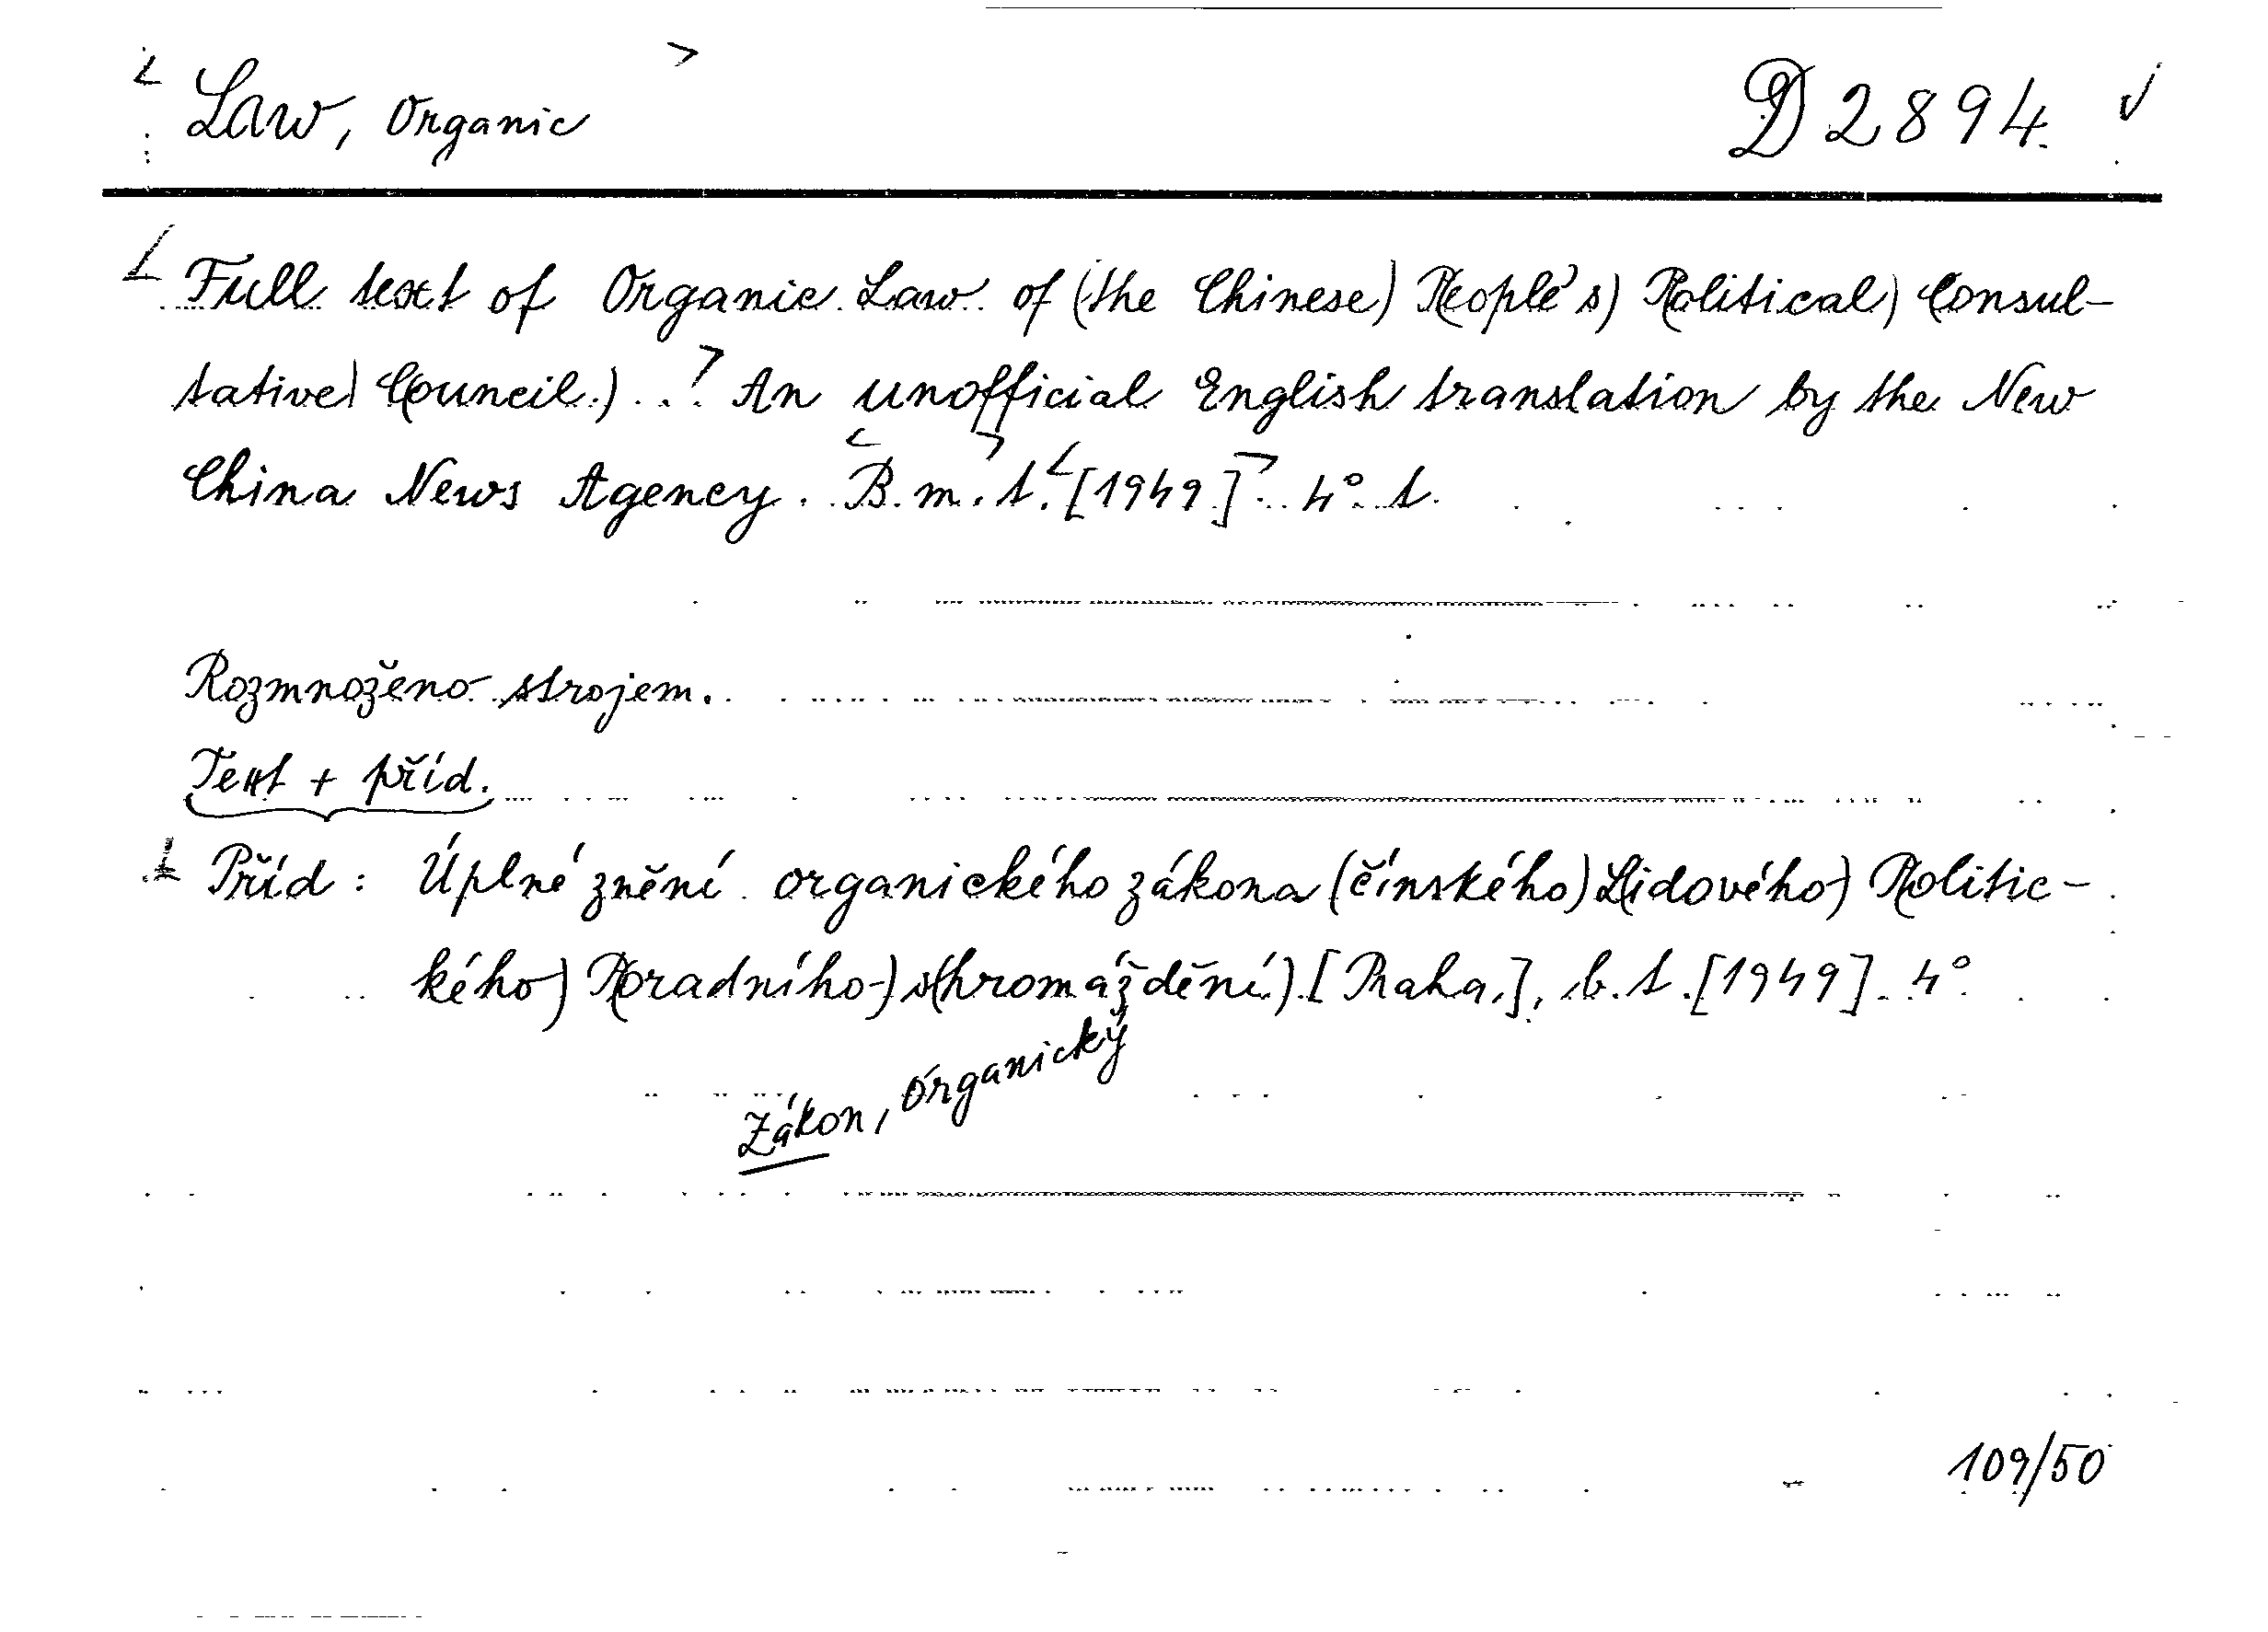 Law, Organic D 2894
Full text of Organic Law of (the Chinese) P(eople's) P(olitical) Consul-
tative) C(ouncil.) ... An unofficial English translation by the New
China News Agency. B. m. t. [1949]. 4° t.
Rozmnoženo strojem.
Text + příd.
Příd: Úplné znění organického zákona (čínského) L(idového) P(olitic-
kého) P(oradního) s(hromáždění.) [Praha,], b. t. [1949]. 4°
Zákon, Organický
109/50